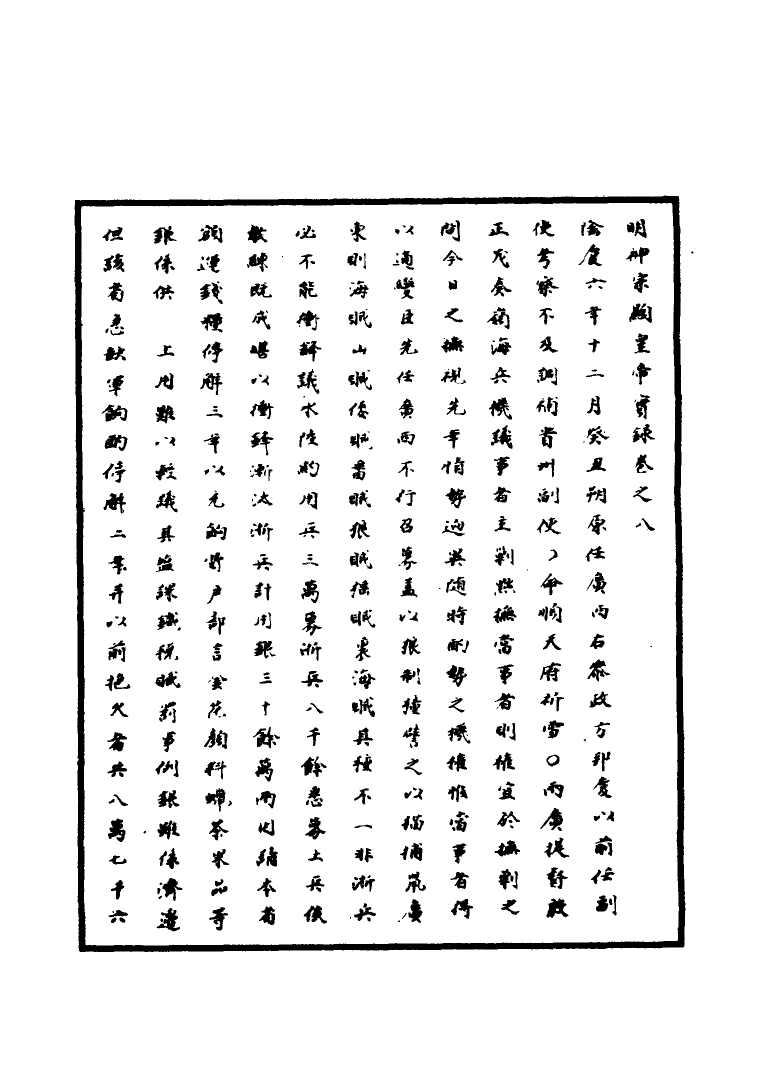 明神宗顯皇帝實録卷之八
隆慶六年十二月癸丑朔原任廣西右叅政方邦慶以前任副
使考察不及調補貴州副使〇命順天府祈雪〇兩廣提督殷
正茂奏嶺海兵機議事者主剿然撫當事者則權宜於撫剿之
間今日之撫視先年情勢逈異随時酌勢之機權惟當事者得
以通變臣先任廣西不行召募盖以狼制獞譬之以猫捕鼠廣
東則海賊山賊倭賊畨賊狼賊猺賊裏海賊其種不一非浙兵
必不能衝鋒議水陸酌用兵三萬募浙兵八千餘悉募土兵俟
教練既成堪以衝鋒漸汰浙兵計用銀三十餘萬兩因請本省
額運錢糧停解三年以充餉時户部言金花顔料蠟茶果品等
銀係供　上用難以輕議其鹽課鐵稅贓罰事例銀雖係濟邊
但該省急缺軍餉酌停解二年并以前拖欠者共八萬七千六